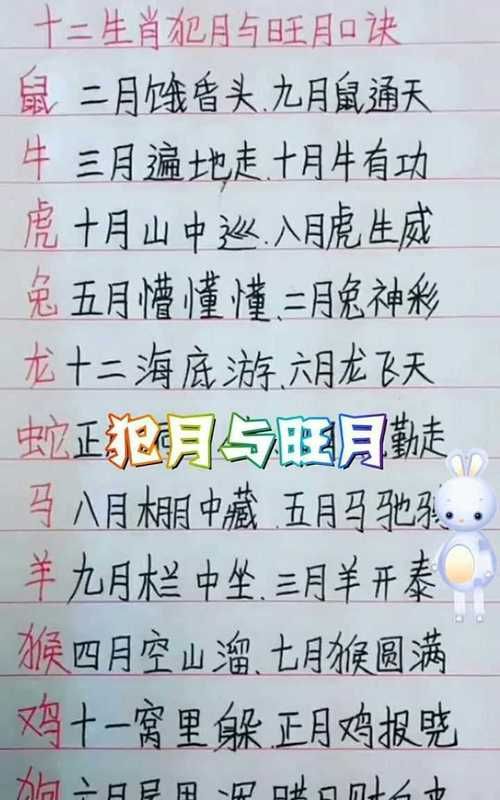 十二生肖犯月与旺月口诀
鼠 二月饿昏头.九月鼠通天
牛 三月遍地走.十月牛有功
虎 十月山中巡.八月虎生威
兔 五月懵懂懂.二月兔神彩
龙 十二海底游.六月龙飞天
蛇 正 勤走
犯月与旺月
马 八月棚中藏 五月马驰
羊 九月栏中坐.三月羊开泰
猴 四月空山溜.七月猴圆满
鸡 十一窝里躲.正月鸡报晓
狗 六月